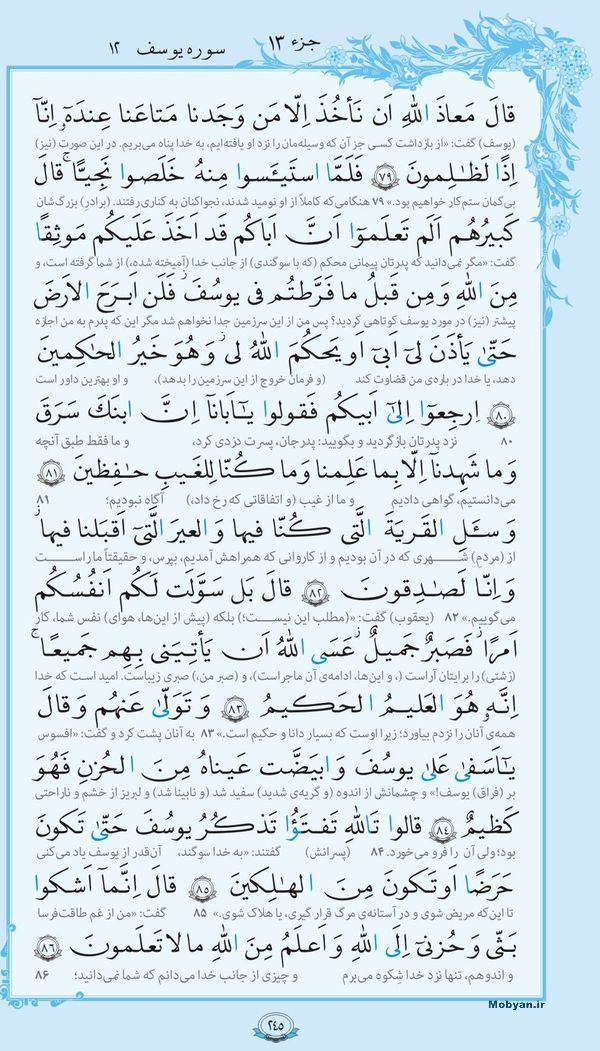 جزء ۱۳ سوره یوسف ۱۲
قالَ مَعاذَ اللّٰهِ اَن نَأخُذَ اِلّا مَن وَجَدنا مَتاعَنا عِندَهُ اِنّآ
(یوسف) گفت: «از بازداشت کسی جز آن که وسیله‌مان را نزد او یافته‌ایم، به خدا پناه می‌بریم. در این صورت (نیز)
اِذًا لَظٰلِمونَ ﴿۷۹﴾ فَلَمَّا استَیـَٔسوا مِنهُ خَلَصوا نَجِیًّا ۖ قالَ
بی‌گمان ستم‌کار خواهیم بود.» ۷۹ هنگامی‌که کاملاً از او نومید شدند، نجواکنان به کناری رفتند. (برادرِ) بزرگ‌شان
کَبیرُهُم اَلَم تَعلَموٓا اَنَّ اَباکُم قَد اَخَذَ عَلَیکُم مَوثِقًا
گفت: «مگر نمی‌دانید که پدرتان پیمانی محکم (که با سوگندی) از جانب خدا (آمیخته شده،) از شما گرفته است، و
مِنَ اللّٰهِ وَ مِن قَبلُ ما فَرَّطتُم فی یوسُفَ ۖ فَلَن اَبرَحَ الاَرضَ
پیشتر (نیز) در مورد یوسف کوتاهی کردید؟ پس من از این سرزمین جدا نخواهم شد مگر این که پدرم به من اجازه
حَتّیٰ یَأذَنَ لیٓ اَبیٓ اَو یَحکُمَ اللّٰهُ لی ۖ وَ هُوَ خَیرُ الحٰکِمینَ
دهد، یا خدا در باره‌ی من قضاوت کند (و فرمان خروج از این سرزمین را بدهد)، و او بهترین داور است
﴿۸۰﴾ اِرجِعوٓا اِلیٰٓ اَبیکُم فَقولوا یٰٓاَبانآ اِنَّ ابنَکَ سَرَقَ
۸۰ نزد پدرتان بازگردید و بگویید: پدرجان، پسرت دزدی کرد، و ما فقط طبق آنچه
وَ ما شَهِدنآ اِلّا بِما عَلِمنا وَ ما کُنّا لِلغَیبِ حٰفِظینَ ﴿۸۱﴾
می‌دانستیم، گواهی دادیم و ما از غیب (و اتفاقاتی که رخ داد،) آگاه نبودیم؛ ۸۱
وَ سـَٔلِ القَریَةَ الَّتی کُنّا فیها وَ العیرَ الَّتیٓ اَقبَلنا فیها ۖ
از (مردمِ) شهری که در آن بودیم و از کاروانی که همراهش آمدیم، بپرس، و حقیقتاً ما راست
وَ اِنّا لَصٰدِقونَ ﴿۸۲﴾ قالَ بَل سَوَّلَت لَکُم اَنفُسُکُم
می‌گوییم.» ۸۲ (یعقوب) گفت: «(مطلب این نیست؛) بلکه (پیش از این‌ها، هوای) نفس شما، کار
اَمرًا ۖ فَصَبرٌ جَمیلٌ ۖ عَسَی اللّٰهُ اَن یَأتِیَنی بِهِم جَمیعًا ۚ
(زشتی) را برایتان آراست (، و این‌ها، ادامه‌ی آن ماجراست)، و (صبر من،) صبری زیباست. امید است که خدا
اِنَّهُ هُوَ العَلیمُ الحَکیمُ ﴿۸۳﴾ وَ تَوَلّیٰ عَنهُم وَ قالَ
همه‌ی آنان را نزدم بیاورد؛ زیرا اوست که بسیار دانا و حکیم است.» ۸۳ به آنان پشت کرد و گفت: «افسوس
یٰٓاَسَفیٰ عَلیٰ یوسُفَ وَ ابیَضَّت عَیناهُ مِنَ الحُزنِ فَهُوَ
بر (فراق) یوسف!» و چشمانش از اندوه (و گریه‌ی شدید) سفید شد (و نابینا شد) و لبریز از خشم و ناراحتی
کَظیمٌ ﴿۸۴﴾ قالوا تَاللّٰهِ تَفتَؤُا تَذکُرُ یوسُفَ حَتّیٰ تَکونَ
بود؛ ولی آن را فرو می‌خورد. ۸۴ (پسرانش) گفتند: «به خدا سوگند، آن‌قدر از یوسف یاد می‌کنی
حَرَضًا اَو تَکونَ مِنَ الهٰلِکینَ ﴿۸۵﴾ قالَ اِنَّمآ اَشکوا
تا این‌که مریض شوی و در آستانه‌ی مرگ قرار گیری، یا هلاک شوی.» ۸۵ گفت: «من از غم طاقت‌فرسا
بَثّی وَ حُزنیٓ اِلَی اللّٰهِ وَ اَعلَمُ مِنَ اللّٰهِ ما لا تَعلَمونَ ﴿۸۶﴾
و اندوهم، تنها نزد خدا شِکوه می‌برم و چیزی از جانب خدا می‌دانم که شما نمی‌دانید؛ ۸۶
۲۴۵
Mobyan.ir